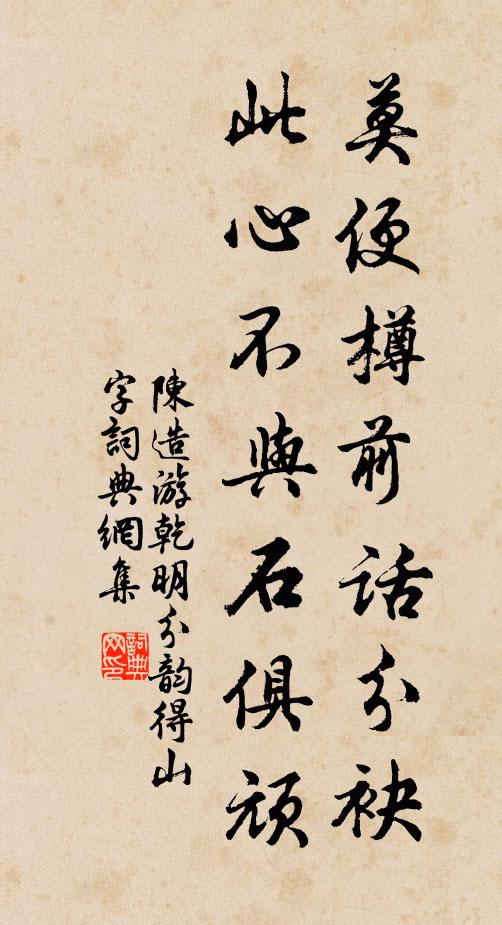 莫便樽前話分袂
此心不與石俱頑
陳造游乾明分韵得山
字詞典網集
詞典
网印